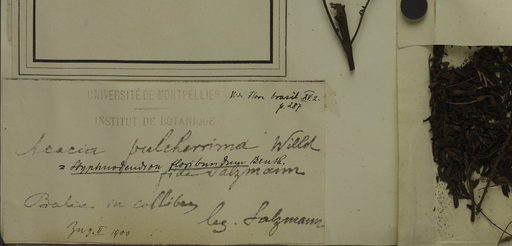 UNIVERSITÉ DE MONTPELLIER
Vide Flora brasil. XV 2.
p. 287
INSTITUT DE BOTANIQUE
Acacia pulcherrima Willd
= Stryphnodendron floribundum Benth.
fide Salzmann
Bahia in collibus
leg. Salzmann
1900